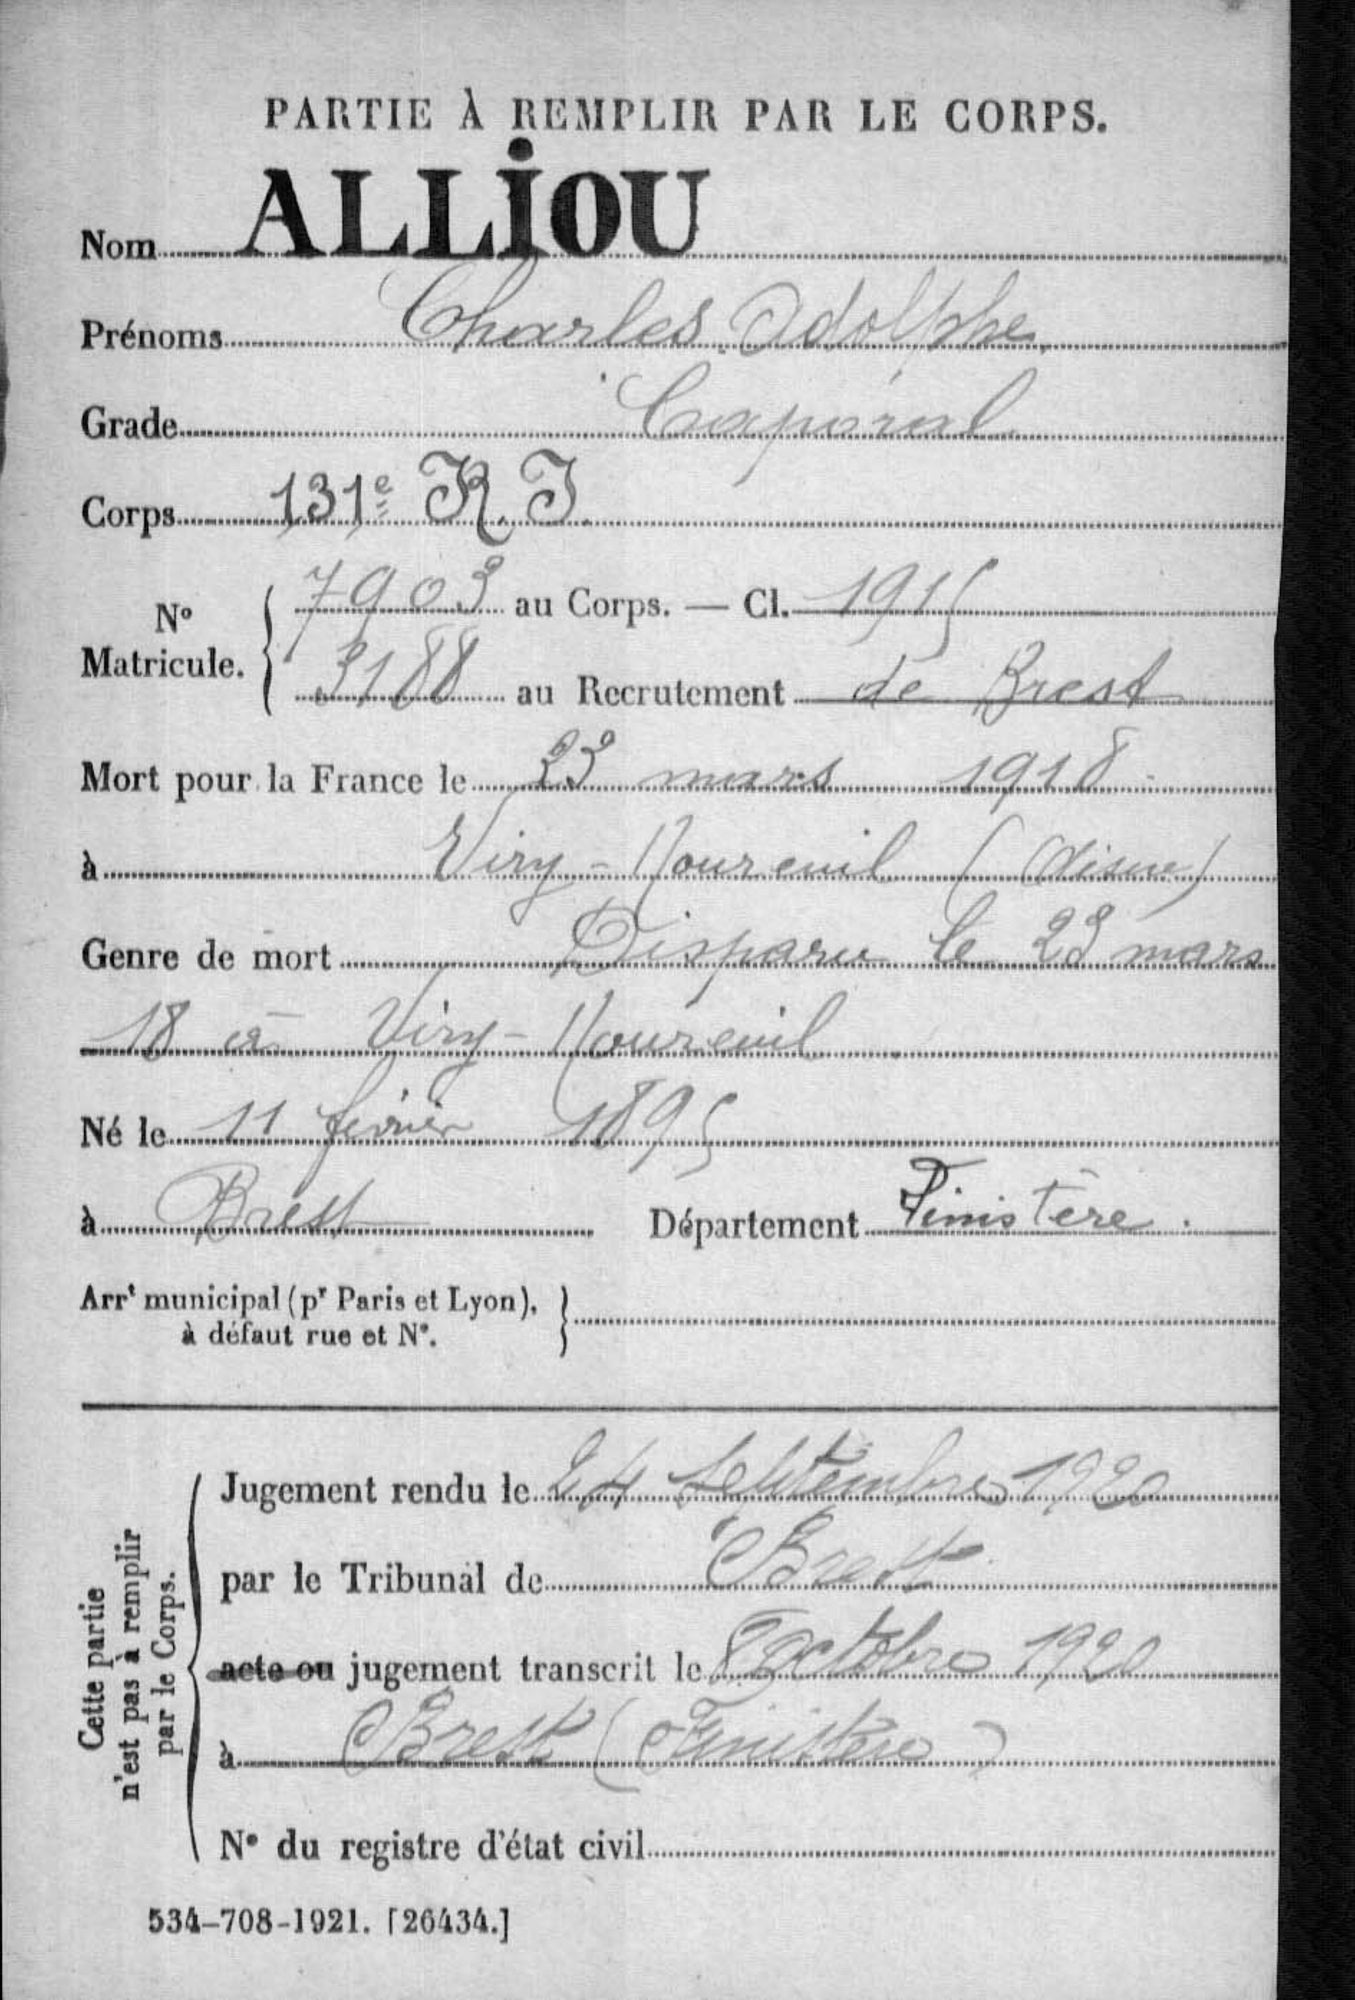 PARTIE À REMPLIR PAR LE CORPS.
Nom ALLiOU
Prénoms Charles Adolphe
Grade Caporal
Corps 131e R. I.
N° Matricule. { 7903 au Corps. — Cl. 1915
3188 au Recrutement de Brest
Mort pour la France le 23 mars 1918
à Viry-Noureuil (Aisne)
Genre de mort Disparu le 23 mars
18 à Viry-Noureuil
Né le 11 février 1895
à Brest Département Finistère.
Arrt municipal (pr Paris et Lyon), }
à défaut rue et N°.
Cette partie
n'est pas à remplir
par le Corps.
Jugement rendu le 24 Septembre 1920
par le Tribunal de Brest
acte ou jugement transcrit le 8 Octobre 1920
à Brest (Finistère)
N° du registre d'état civil
534-708-1921. [26434.]